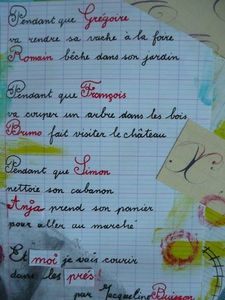 Pendant que Grégoire
va rendre sa vache à la foire
Romain bêche dans son jardin
Pendant que François
va couper un arbre dans les bois
Bruno fait visiter le château
Pendant que Simon
nettoie son cabanon
Anja prend son panier
pour aller au marché
Et moi je vais courir
dans les prés!
par Jacqueline Buisson